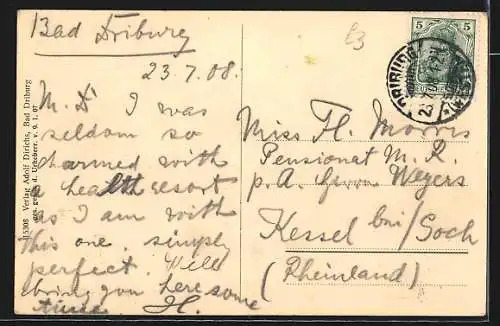 Bad Driburg
23.7.08.
M. D' I was
seldom so
charmed with
a health resort
as I am with
this one. simply
perfect. Will
bring you here some
time. H.
E3
5
5
DRIBURG
Miss Fl. Morris
Pensionat M. R.
p. A. Herrn Weyers
Kessel bei/Goch
(Rheinland)
15308 Verlag Adolf Dirichs, Bad Driburg
ges. gesch. d. Urheberr. v. 9. 1. 07